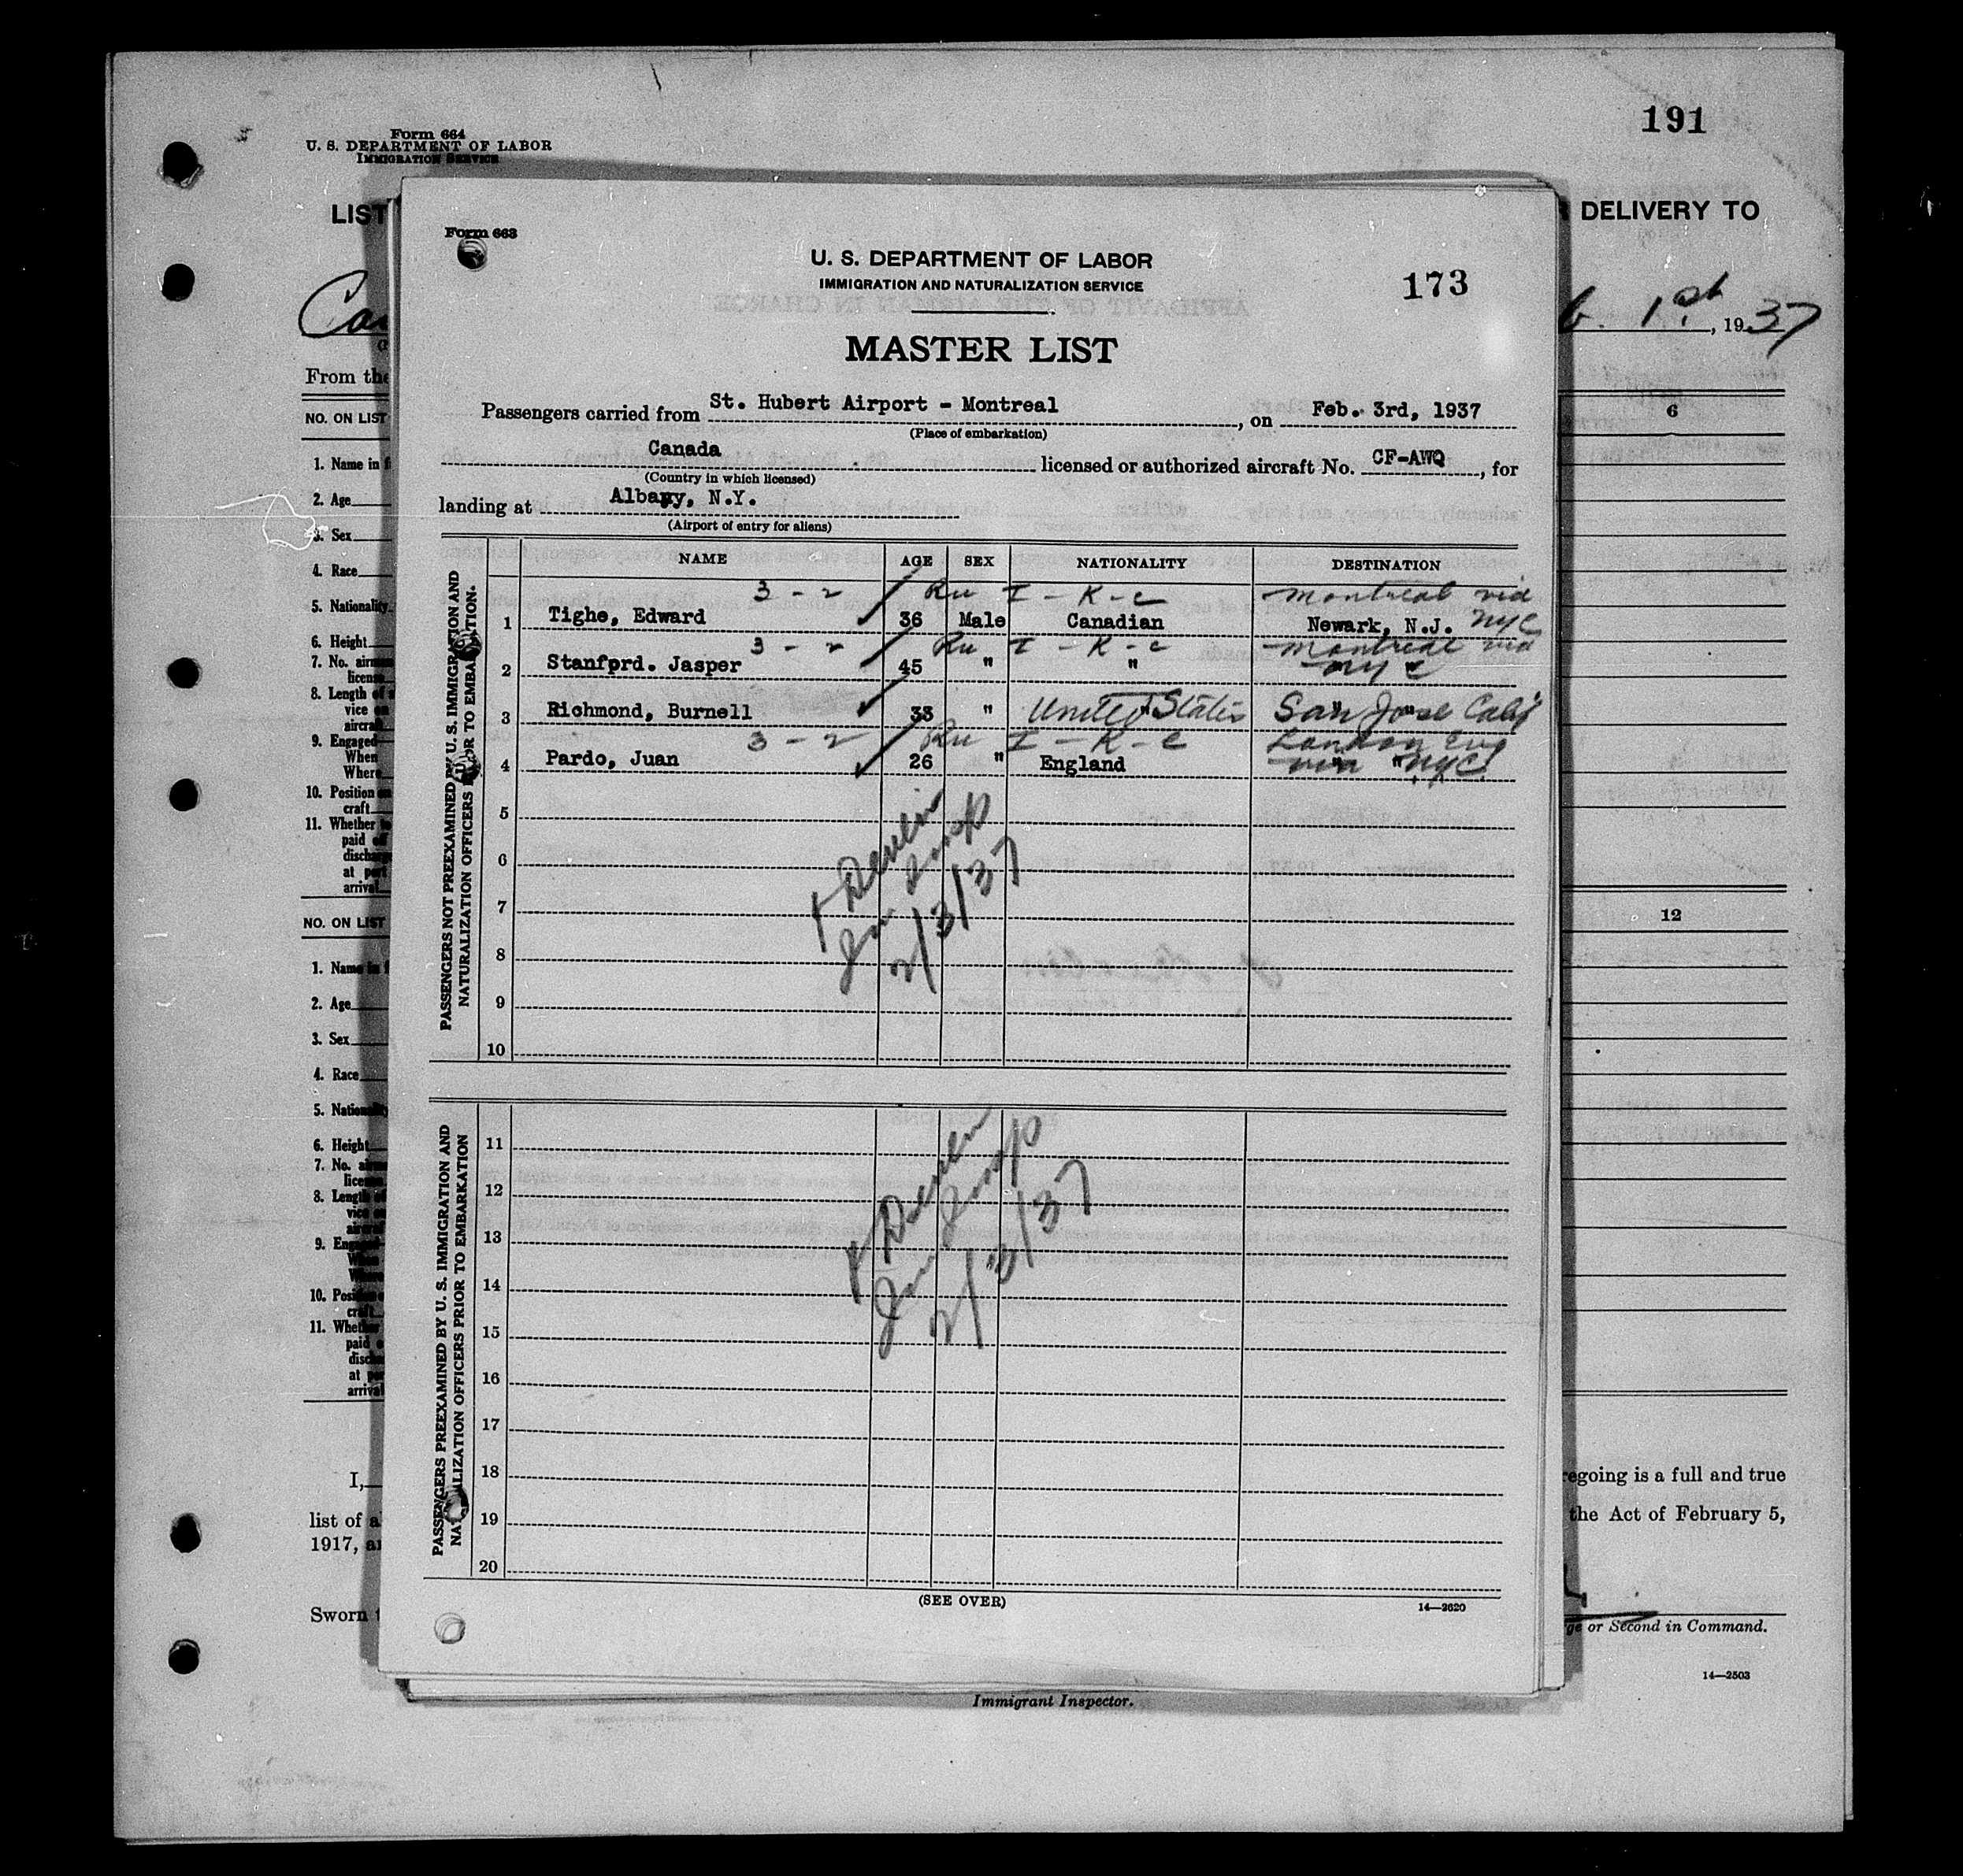 191
Form 664
U. S. DEPARTMENT OF LABOR
IMMIGRATION SERVICE
LIST
R DELIVERY TO
1st, 1937
From the
NO. ON LIST
6
1. Name in f
2. Age
3. Sex
4. Race
5. Nationality
6. Height
7. No. airm
license
8. Length of s
vice
aircraft
9. Engaged
When
Where
10. Position
craft
11. Whether to
paid off
discharge
at port
arrival
NO. ON LIST
12
1. Name in f
2. Age
3. Sex
4. Race
5. Nationality
6. Height
7. No. airm
license
8. Length of
vice on
aircraft
9. Engaged
When
Where
10. Posi
craft
11. Whether
paid o
disch
at por
arrival
I,
regoing is a full and true
list of a
the Act of February 5,
1917, a
Sworn t
ge or Second in Command.
14—2503
Immigrant Inspector.
Form 663
U. S. DEPARTMENT OF LABOR
IMMIGRATION AND NATURALIZATION SERVICE
173
MASTER LIST
Passengers carried from St. Hubert Airport - Montreal, on Feb. 3rd, 1937
(Place of embarkation)
Canada licensed or authorized aircraft No. CF-AWQ, for
(Country in which licensed)
landing at Albany, N.Y.
(Airport of entry for aliens)
PASSENGERS NOT PREEXAMINED BY U. S. IMMIGRATION AND
NATURALIZATION OFFICERS PRIOR TO EMBARKATION.
NAME AGE SEX NATIONALITY DESTINATION
3 - 2 Ru I - K - C Montreal via
1 Tighe, Edward 36 Male Canadian Newark, N.J. NYC
3 - 2 Ru I - K - C Montreal via
2 Stanford. Jasper 45 " " " NYC
3 Richmond, Burnell 33 " " United States San Jose Calif
3 - 2 Ru I - K - C London Eng
4 Pardo, Juan 26 " England via " NYC
5
6
7
8
9
10
Devlin
Imm Insp
2/3/37
PASSENGERS PREEXAMINED BY U. S. IMMIGRATION AND
NATURALIZATION OFFICERS PRIOR TO EMBARKATION
11
12
13
14
15
16
17
18
19
20
Devlin
Imm Insp
2/3/37
(SEE OVER)
14—2620